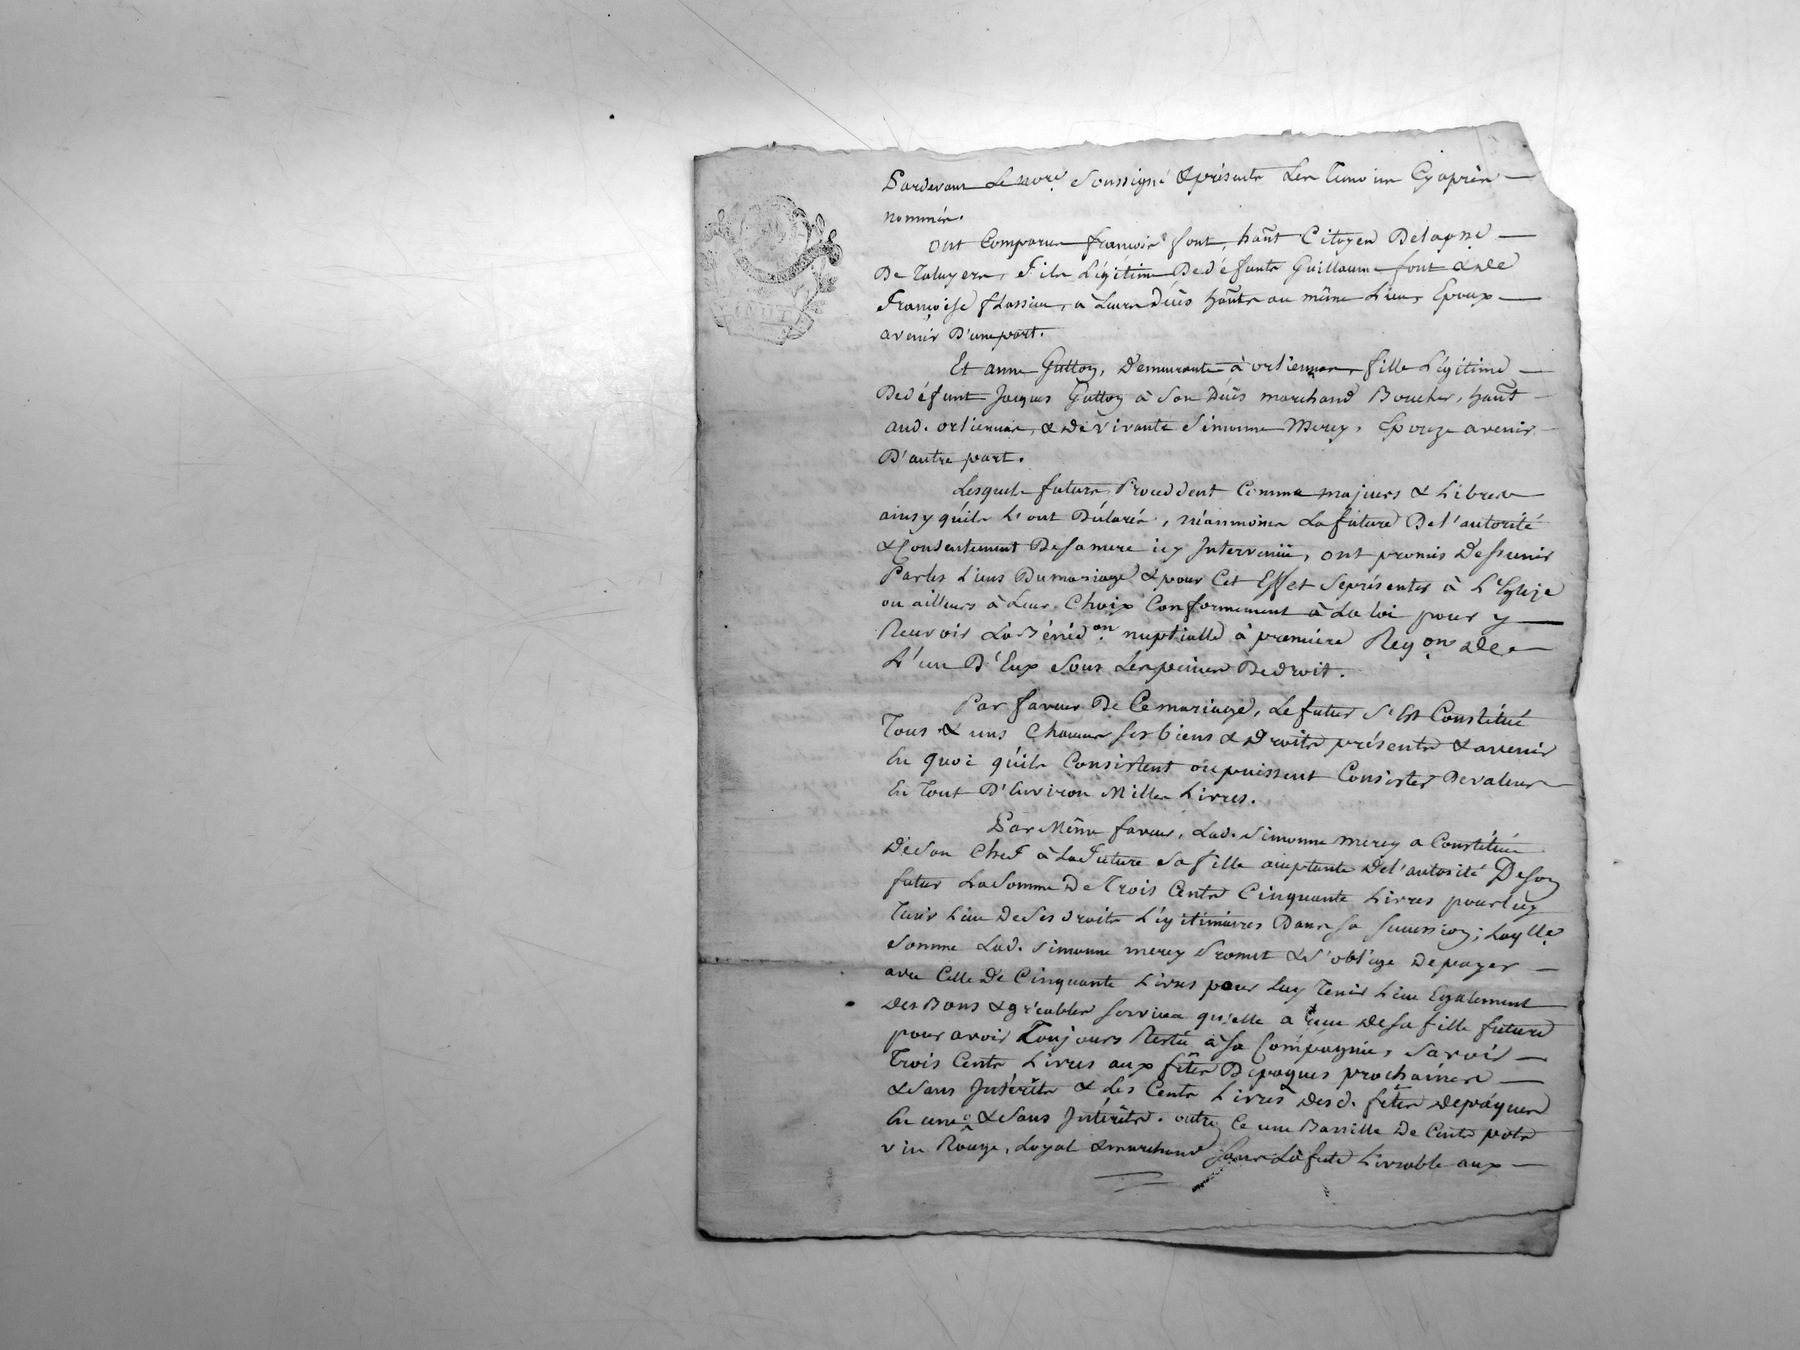 Pardevant Le no.re Soussigné & présents Les Temoins Cyaprès
nommés.
ont Comparus françois font, ha.nt Citoyen
De Taluyers, fils Légitime De défunts Guillaume font & de
françoise flassieu, à Leurs Décès ha.nts au même Lieu, Epoux
avenir D'une part.
Et anne Guttoy, Demeurante à orlienas, fille Légitime
De défunt Jaques Guttoy à Son Décès marchand Boucher, ha.nt
aud. orlienas, & de vivante Simonne Merey, Epouze avenir
D'autre part.
Lesquels futurs, Procédent Comme majeurs & Libres
ainsy qu'ils L'ont Déclarés, néanmoins La future De l'autorité
& Consentement De Sa mere icy Intervenüe, ont promis De s'unir
Par les Liens Du mariage & pour Cet Effet Se présenter à L'Eglise
ou ailleurs à Leur Choix Conformement à La Loi pour y
Recevoir La Bénéd.on nuptialle à première Req.on de
L'un D'Eux Sous Les peines De droit.
Par faveur De Ce mariage, Le futur S'est Constitué
Tous & uns Chacuns ses biens & Droits présents & avenir
En quoi qu'ils Consistent ou puissent Consister De valeur
En Tout D'Environ Mille Livres.
Par Même faveur, Lad. Simonne merey a Constitué
De Son Chef à La future Sa fille aceptante De l'autorité De Son
futur La Somme De Trois Cents Cinquante Livres pour Luy
Tenir Lieu De Ses droits Légitimaires Dans Sa Succession; Laq.lle
Somme Lad. Simonne merey Promet & S'oblige De payer
avec Celle De Cinquante Livres pour Luy Tenir Lieu Egalement
Des Bons & gréables Services qu'elle a de Sa fille future
pour avoir Toujours Resté à Sa Compagnie, Savoir
Trois Cents Livres aux fêtes De paques prochaines
& Sans Intérêts & Les Cents Livres Desd. fêtes De paques
En un & Sans Intérêts. outre Ce une Barrille De Cents pots
vin Rouge, Loyal & marchand Livrable aux